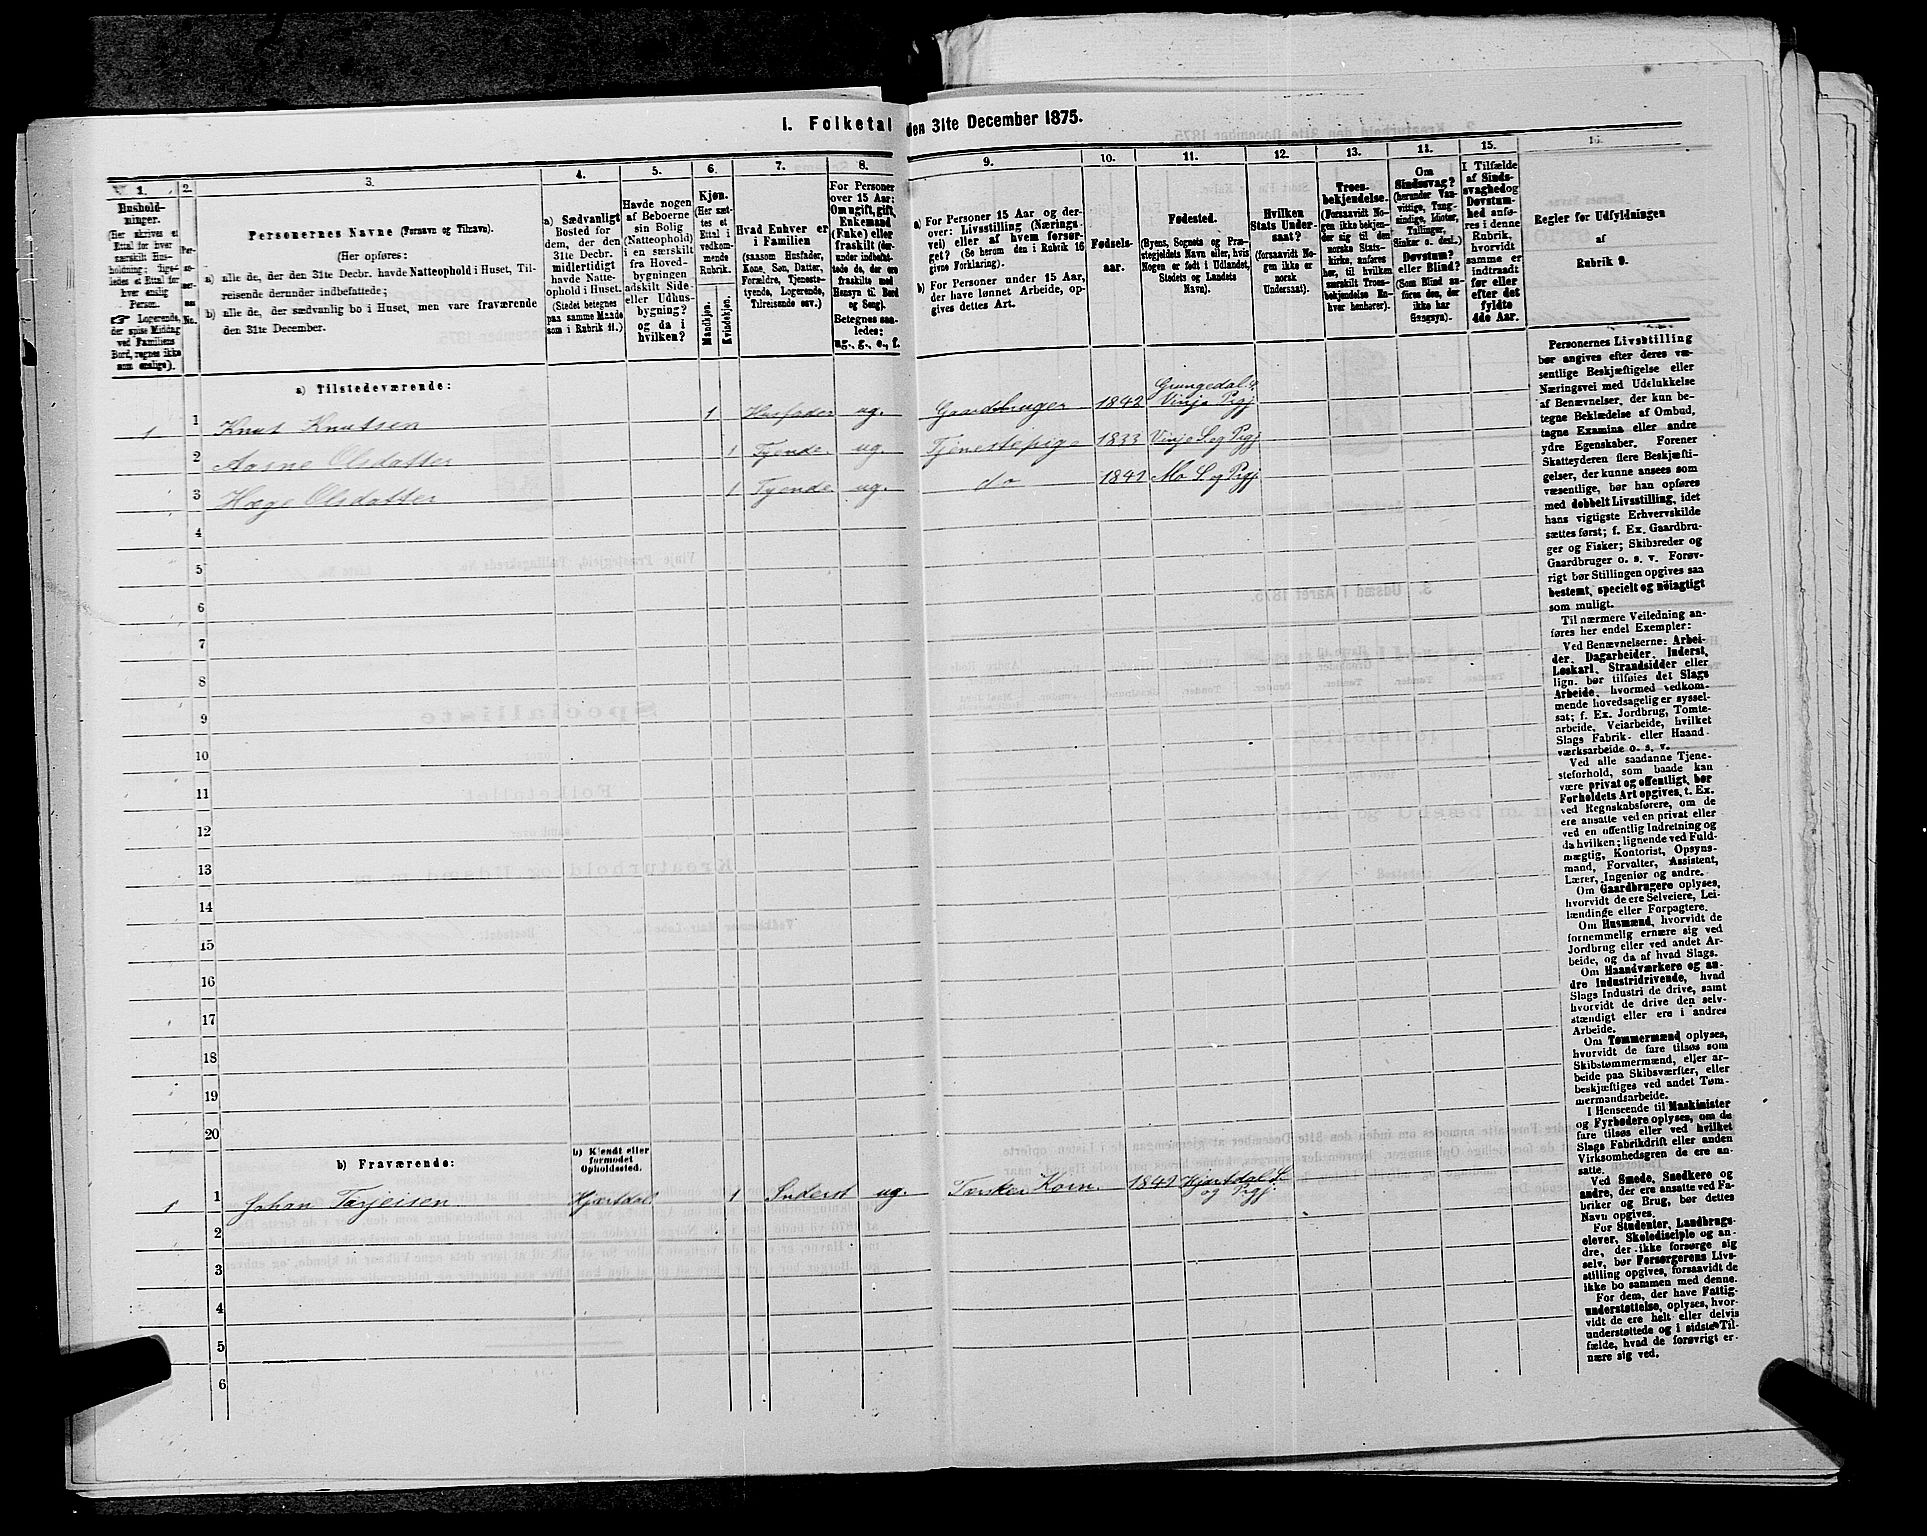 I. Folketal den 31te December 1875.
1.
Hushold-
ninger.
(Her skrives et
Ettal for hver
særskilt Hus-
holdning; lige-
ledes et Ettal for
hver enslig
Person.
☞ Logerende,
der spise Middag
ved Familiens
Bord, regnes ikke
som enslige).
2.
Per-
so-
ner-
nes
No.
3.
Personernes Navne (Fornavn og Tilnavn).
(Her opføres:
a) alle de, der den 31te Decbr. havde Natteophold i Huset, Til-
reisende derunder indbefattede;
b) alle de, der sædvanlig bo i Huset, men vare fraværende
den 31te December.
4.
a) Sædvanligt
Bosted for
dem, der den
31te Decbr.
midlertidigt
havde Natte-
ophold i Huset.
(Stedet betegnes
paa samme Maade
som i Rubrik 11.)
5.
Havde nogen
af Beboerne
sin Bolig
(Natteophold)
i en særskilt
fra Hoved-
bygningen
adskilt Side-
eller Udhus-
bygning?
og da i
hvilken?
6.
Kjøn.
(Her sæt-
tes et
Ettal i
vedkom-
mende
Rubrik.
Mandkjøn.
Kvindekjøn.
7.
Hvad Enhver er
i Familien
(saasom Husfader,
Kone, Søn, Datter,
Forældre, Tjeneste-
tyende, Logerende,
Tilreisende osv.)
8.
For Personer
over 15 Aar:
Om ugift, gift,
Enkemand
(Enke) eller
fraskilt (der-
under indbefat-
tede de, der ere
fraskilte med
Hensyn til Bord
og Seng).
Betegnes saa-
ledes:
ug., g., e., f.
9.
a) For Personer 15 Aar og der-
over: Livsstilling (Nærings-
vei) eller af hvem forsør-
get? (Se herom den i Rubrik 16
givne Forklaring).
b) For Personer under 15 Aar,
der have lønnet Arbeide, op-
gives dettes Art.
10.
Fødsels-
aar.
11.
Fødested.
(Byens, Sognets og Præ-
stegjeldets Navn eller, hvis
Nogen er født i Udlandet,
Stedets og Landets
Navn).
12.
Hvilken
Stats Under-
saat?
(forsaavidt No-
gen ikke er
norsk
Undersaat).
13.
Troes-
bekjendelse.
(Forsaavidt No-
gen ikke bekjen-
der sig til den
norske Stats-
kirke, anføres
her, til hvilken
særskilt Troes-
bekjendelse En-
hver henhører).
14.
Om
Sindssvag?
(herunder Van-
vittige, Tung-
sindige, Idioter,
Tullinger,
Sinker o. desl.)
Døvstum?
eller Blind?
(Som Blind an-
føres den, der
ikke har
Gangsyn).
15.
I Tilfælde
af Sinds-
svaghed og
Døvstum-
hed anfø-
res i denne
Rubrik,
hvorvidt
samme er
indtraadt
før eller
efter det
fyldte
4de Aar.
16.
Regler for Udfyldningen
af
Rubrik 9.
a) Tilstedeværende:
1 1 Knut Knutsen 1 Husfader ug. Gaardbruger 1842 Grungedal S. Vinje Pgj
2 Aasne Olsdatter 1 Tyende ug. Tjenestepige 1833 Vinje S. og Pgj
3 Hæge Olsdatter 1 Tyende ug. do 1841 Mo S. og Pgj.
4
5
6
7
8
9
10
11
12
13
14
15
16
17
18
19
20
b) Fraværende:
b) Kjendt eller
formodet
Opholdssted.
1 1 Johan Tarjeisen Hjartdal 1 Inderst ug. Tærsker Korn. 1841 Hjartdal S. og Pgj.
2
3
4
5
6
Personernes Livsstilling
bør angives efter deres væ-
sentlige Beskjæftigelse eller
Næringsvei med Udelukkelse
af Benævnelser, der kun be-
tegne Beklædelse af Ombud,
tagne Examina eller andre
ydre Egenskaber. Forener
Skatteyderen flere Beskjæfti-
gelser, der kunne ansees som
væsentlige, bør han opføres
med dobbelt Livsstilling, idet
hans vigtigste Erhvervskilde
sættes først; f. Ex. Gaardbru-
ger og Fisker; Skibsreder og
Gaardbruger o. s. v. Forøv-
rigt bør Stillingen opgives saa
bestemt, specielt og nøiagtigt
som muligt.
Til nærmere Veiledning an-
føres her endel Exempler:
Ved Benævnelserne: Arbei-
der, Dagarbeider, Inderst,
Løskarl, Strandsidder eller
lign. bør tilføies det Slags
Arbeide, hvormed vedkom-
mende hovedsagelig er syssel-
sat; f. Ex. Jordbrug, Tomte-
arbeide, Veiarbeide, hvilket
Slags Fabrik- eller Haand-
værksarbeide o. s. v.
Ved alle saadanne Tjene-
steforhold, som baade kan
være privat og offentligt, bør
Forholdets Art opgives, t. Ex.
ved Regnskabsførere, om de
ere ansatte ved en privat eller
ved en offentlig Indretning og
da hvilken; lignende ved Fuld-
mægtig, Kontorist, Opsyns-
mand, Forvalter, Assistent,
Lærer, Ingeniør og andre.
Om Gaardbrugere oplyses,
hvorvidt de ere Selveiere, Lei-
lændinge eller Forpagtere.
Om Husmænd, hvorvidt de
fornemmelig ernære sig ved
Jordbrug eller ved andet Ar-
beide, og da af hvad Slags.
Om Haandværkere og an-
dre Industridrivende, hvad
Slags Industri de drive, samt
hvorvidt de drive den selv-
stændigt eller ere i andres
Arbeide.
Om Tømmermænd oplyses,
hvorvidt de fare tilsøs som
Skibstømmermænd, eller ar-
beide paa Skibsværfter, eller
beskjæftiges ved andet Tøm-
mermandsarbeide.
I Henseende til Maskinister
og Fyrbødere oplyses, om de
fare tilsøs eller ved hvilket
Slags Fabrikdrift eller anden
Virksomhedsgren de ere an-
satte.
Ved Smede, Snedkere og
andre, der ere ansatte ved Fa-
briker og Brug, bør dettes
Navn opgives.
For Studenter, Landbrugs-
elever, Skoledisciple og an-
dre, der ikke forsørge sig
selv, bør Forsørgerens Livs-
stilling opgives, forsaavidt de
ikke bo sammen med denne.
For dem, der have Fattig-
understøttelse, oplyses, hvor-
vidt de ere helt eller delvis
understøttede og i sidste Til-
fælde, hvad de forøvrigt er-
nære sig ved.